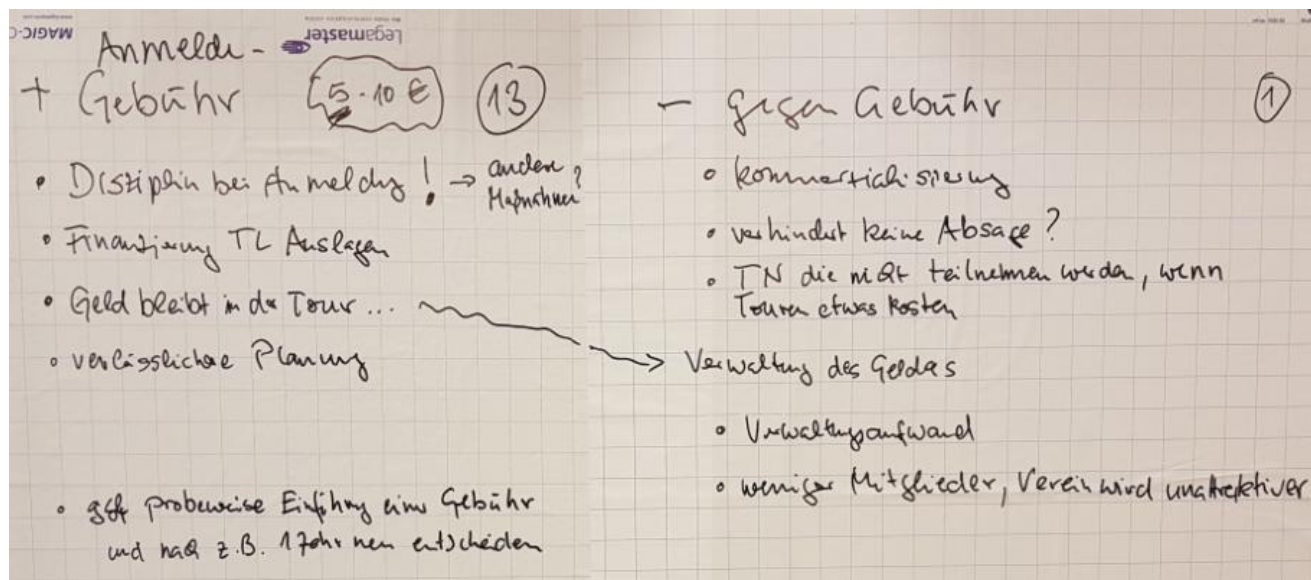 MAGIC-C
Legamaster
Anmelde-
+ Gebühr 5-10 € 13
• Disziplin bei Anmeldung! → andere Maßnahmen?
• Finanzierung TL Auslagen
• Geld bleibt in der Tour...
• verlässlichere Planung
• ggf probeweise Einführung einer Gebühr
und nach z.B. 1 Jahr neu entscheiden
- gegen Gebühr 1
• Kommerzialisierung
• verhindert keine Absage?
• TN die nicht teilnehmen werden, wenn
Touren etwas kosten
→ Verwaltung des Geldes
• Verwaltungsaufwand
• weniger Mitglieder, Verein wird unattraktiver